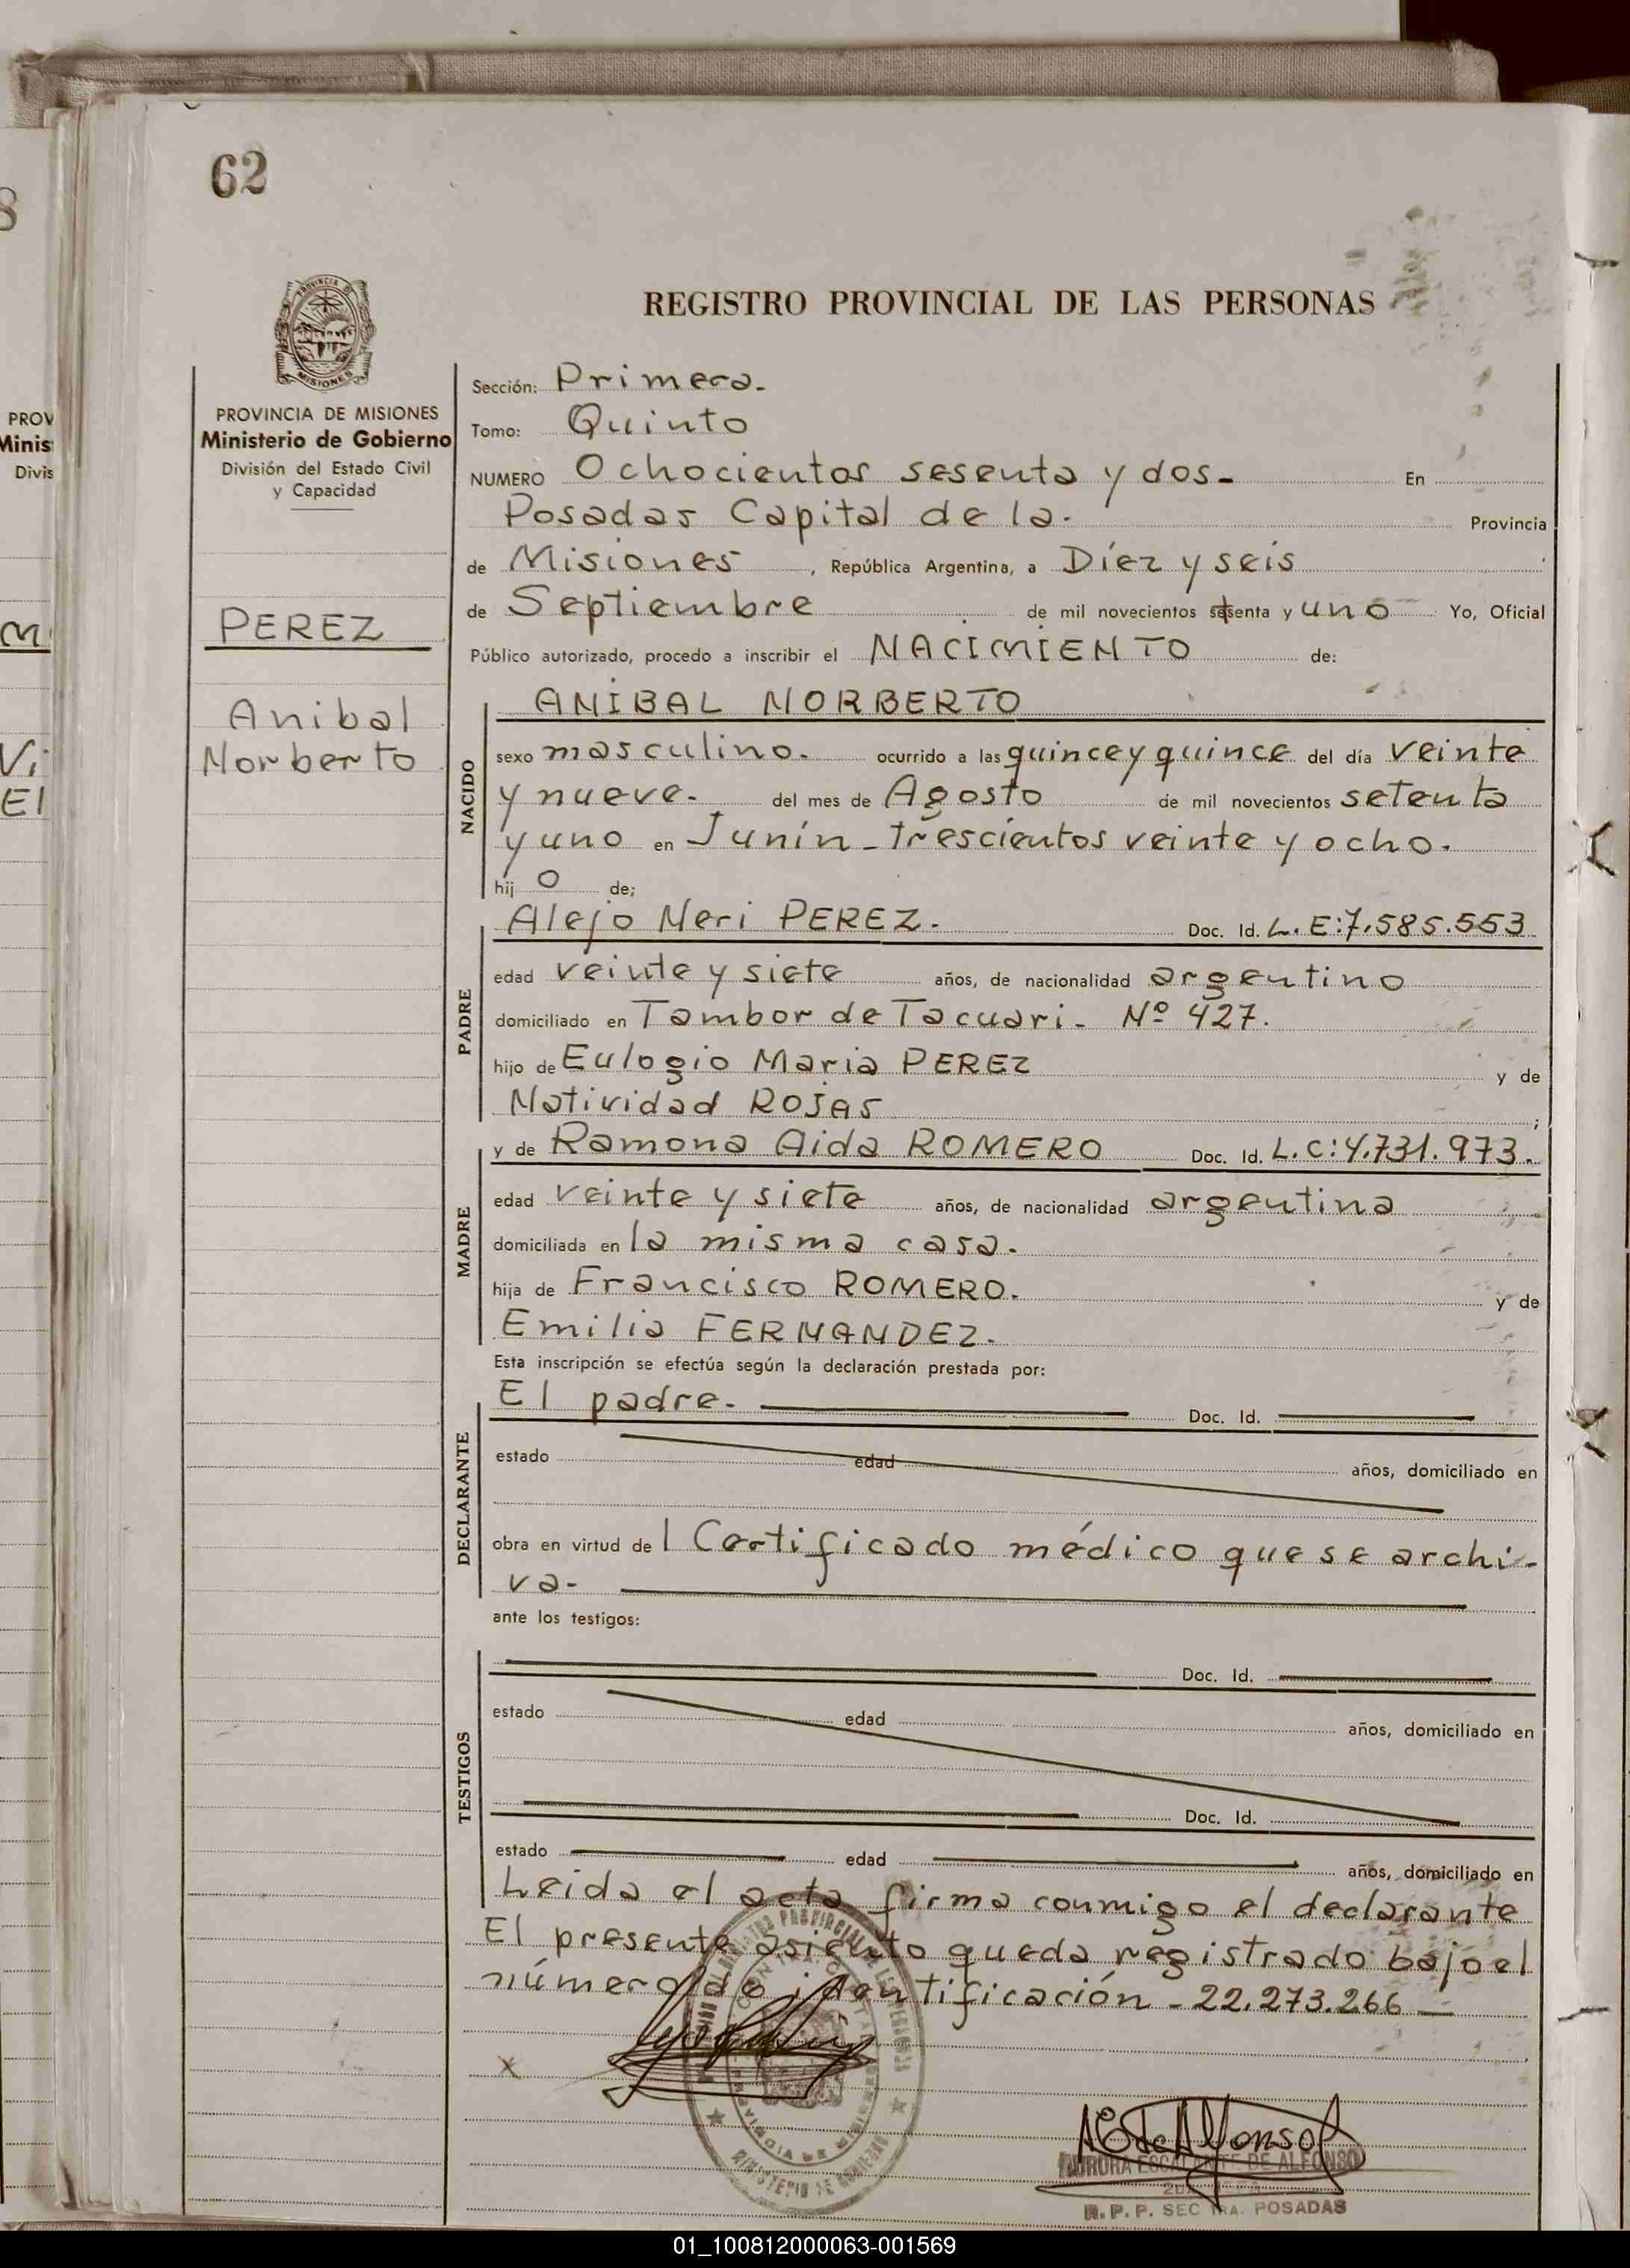 62
PROVINCIA DE MISIONES
REGISTRO PROVINCIAL DE LAS PERSONAS
PROVINCIA DE MISIONES
Ministerio de Gobierno
División del Estado Civil
y Capacidad
PEREZ
Anibal
Norberto
Sección: Primera.
Tomo: Quinto
NUMERO Ochocientos sesenta y dos. En
Posadas Capital de la. Provincia
de Misiones, República Argentina, a Díez y seis
de Septiembre de mil novecientos setenta y uno Yo, Oficial
Público autorizado, procedo a inscribir el NACIMIENTO de:
NACIDO
ANIBAL NORBERTO
sexo masculino. ocurrido a las quince y quince del día veinte
y nueve. del mes de Agosto de mil novecientos setenta
y uno en Junín - trescientos veinte y ocho.
hij o de;
PADRE
Alejo Neri PEREZ. Doc. Id. L.E:7.585.553
edad veinte y siete años, de nacionalidad argentino
domiciliado en Tambor de Tacuari. Nº 427.
hijo de Eulogio Maria PEREZ y de
Natividad ROJAS ;
MADRE
y de Ramona Aida ROMERO Doc. Id. L.C:4.731.973.
edad veinte y siete años, de nacionalidad argentina
domiciliada en la misma casa.
hija de Francisco ROMERO. y de
Emilia FERNANDEZ.
Esta inscripción se efectúa según la declaración prestada por:
DECLARANTE
El padre. Doc. Id.
estado edad años, domiciliado en
obra en virtud de l Certificado médico que se archi-
va-
ante los testigos:
TESTIGOS
Doc. Id.
estado edad años, domiciliado en
Doc. Id.
estado edad años, domiciliado en
Leida el acta firma conmigo el declarante
El presente asiento queda registrado bajo el
número de identificación - 22.273.266 -
X
AURORA ESCALANTE DE ALFONSO
R.P.P. SEC 1RA. POSADAS
8
PROV
Minis
Divis
M
Vi
El
01_100812000063-001569